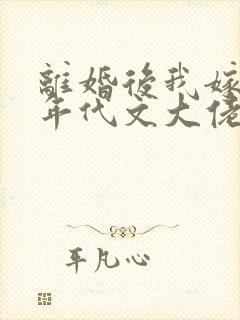 離婚後我嫁
年代文大佬
平凡心